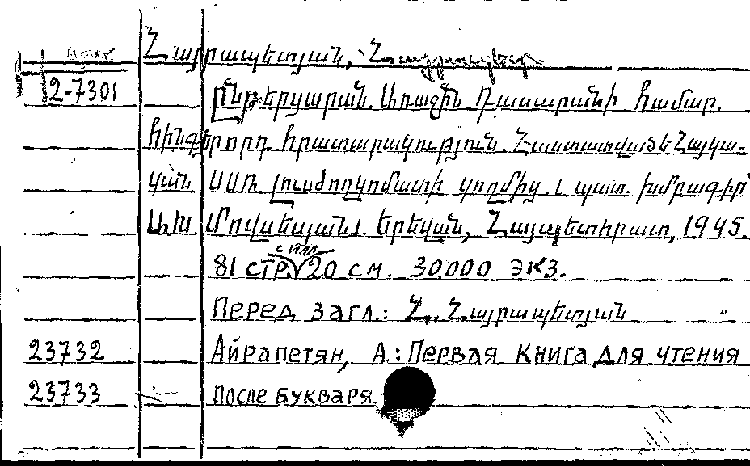 Հայրապետյան, Հ
2-7301
Ընթերցարան Առաջին Դասարանի համար.
հինգերորդ հրատարակություն Հաստատված է Հայկա-
կան ՍՍՌ լուսժողկոմատի կողմից. պատ. խմբագիր
Մովսեսյան Երեվան, Հայպետհրատ, 1945.
81 стр. с илл. 20 см. 30.000 экз.
Перед загл.: Հ. Հայրապետյան
23732 Айрапетян, А.: Первая книга для чтения
23733 после букваря